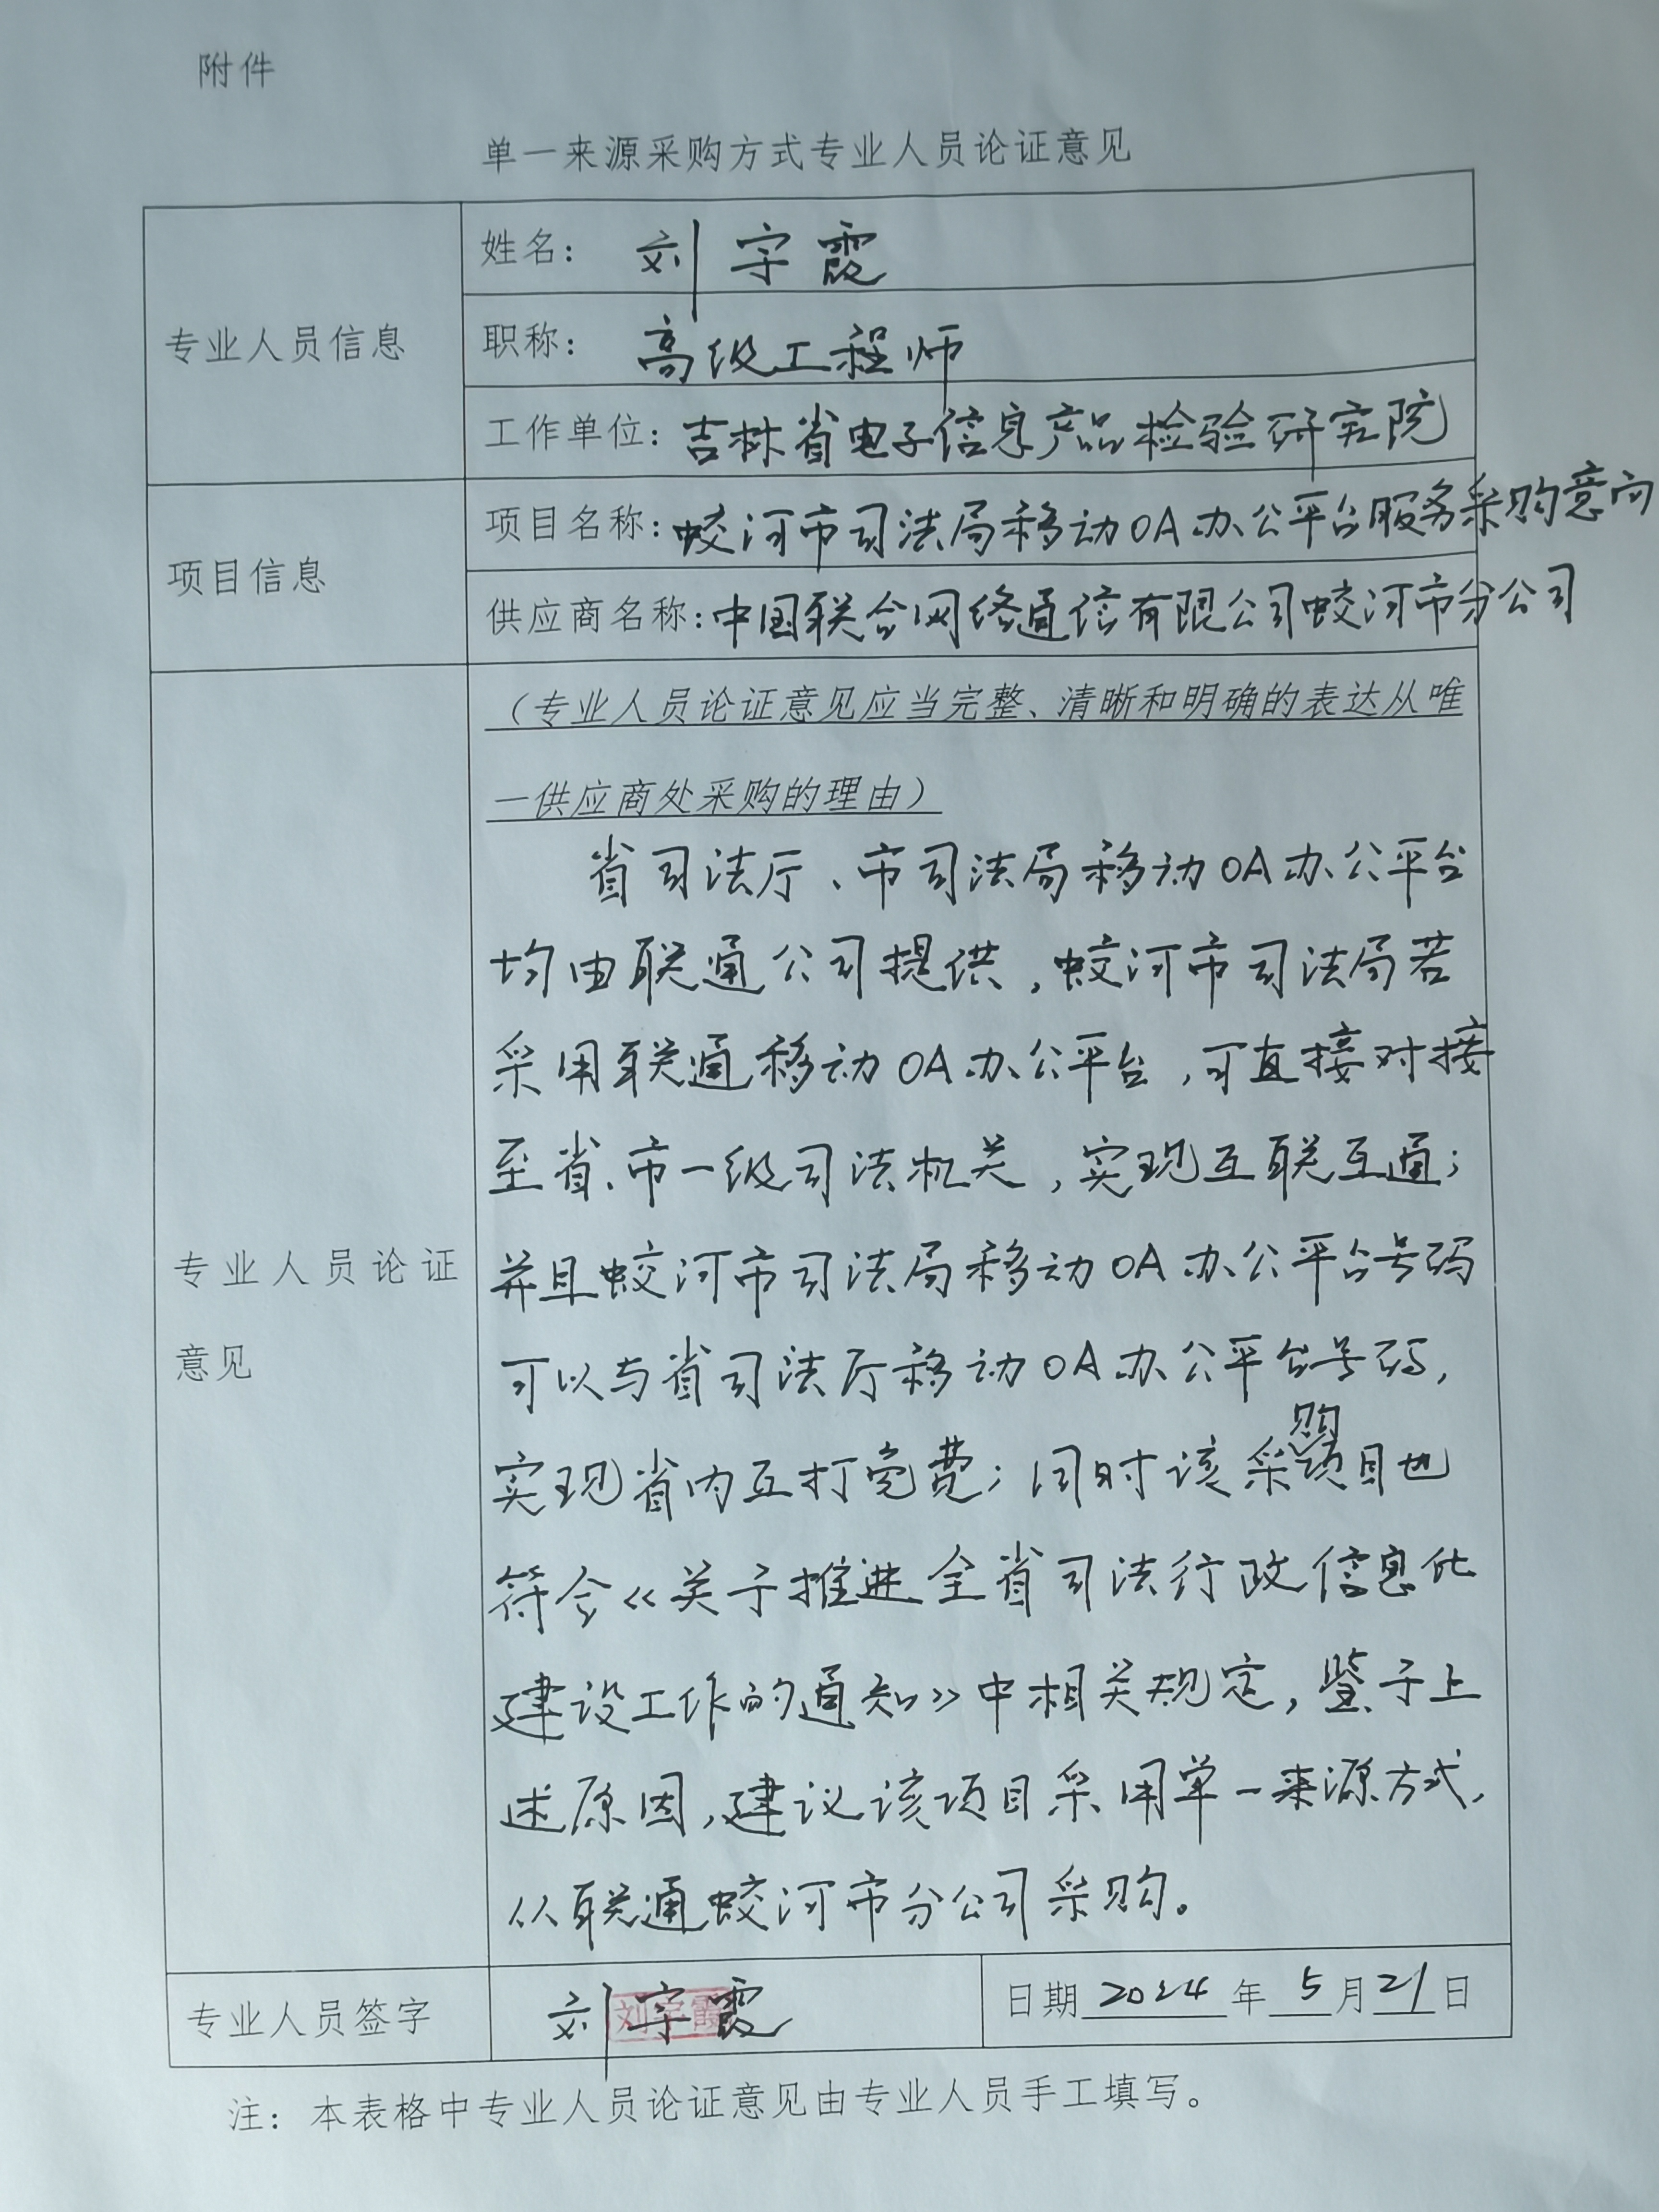 附件
单一来源采购方式专业人员论证意见
专业人员信息
姓名：刘宇霞
职称：高级工程师
工作单位：吉林省电子信息产品检验研究院
项目信息
项目名称：蛟河市司法局移动OA办公平台服务采购意向
供应商名称：中国联合网络通信有限公司蛟河市分公司
专业人员论证
意见
（专业人员论证意见应当完整、清晰和明确的表达从唯
一供应商处采购的理由）
省司法厅、市司法局移动OA办公平台
均由联通公司提供，蛟河市司法局若
采用联通移动OA办公平台，可直接对接
至省、市一级司法机关，实现互联互通；
并且蛟河市司法局移动OA办公平台号码
可以与省司法厅移动OA办公平台号码，
实现省内互打免费；同时该采购项目也
符合《关于推进全省司法行政信息化
建设工作的通知》中相关规定，鉴于上
述原因，建议该项目采用单一来源方式，
从联通蛟河市分公司采购。
专业人员签字
刘宇霞
刘宇霞
日期2024年5月21日
注：本表格中专业人员论证意见由专业人员手工填写。